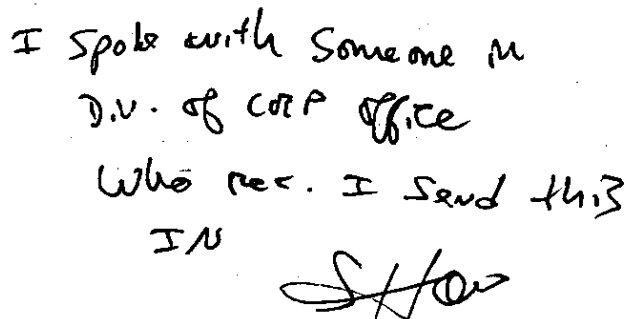 I Spoke with Someone in
Div. of CORP Office
Who rec. I Send this
IN